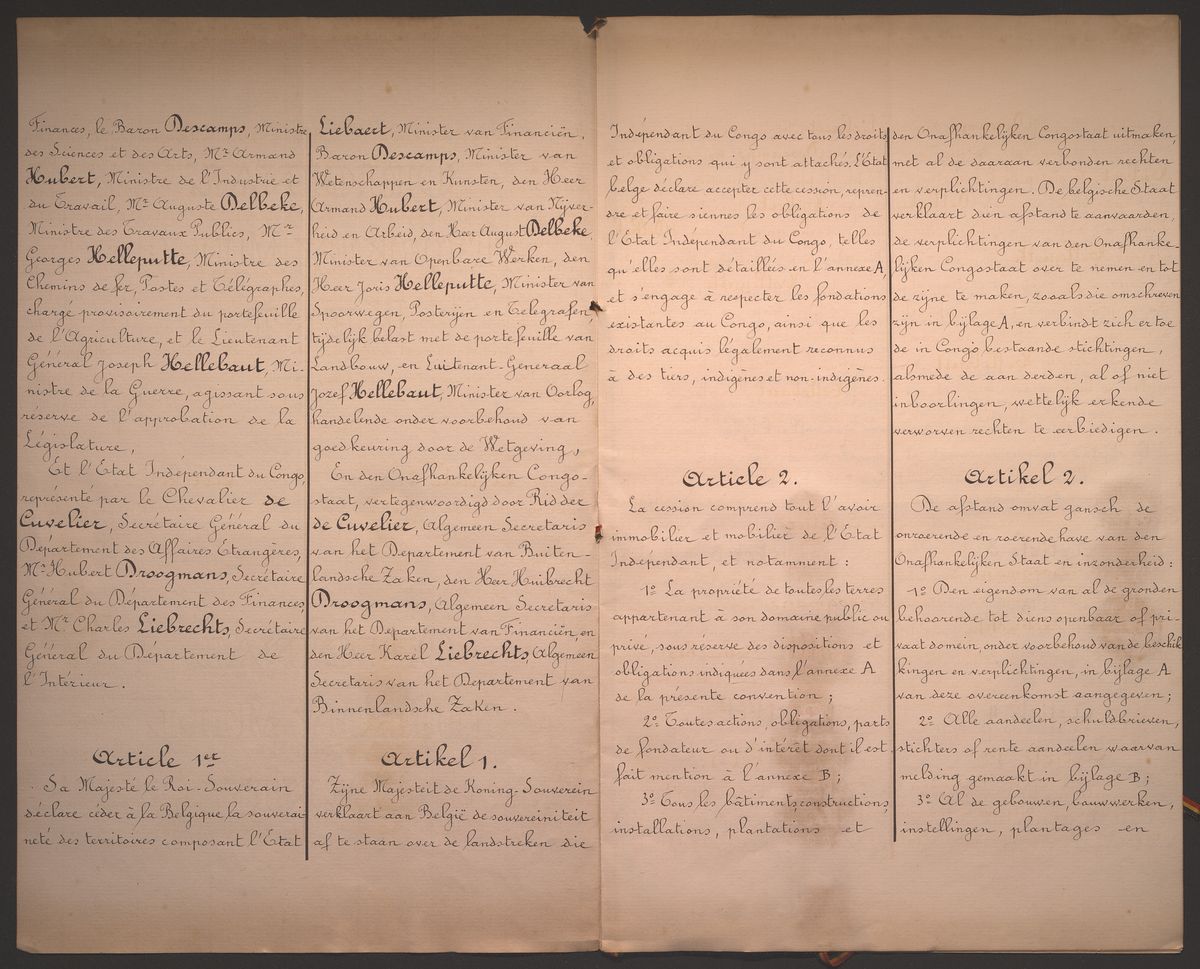 Finances, le Baron Descamps, Ministre
des Sciences et des Arts, Mr Armand
Hubert, Ministre de l'Industrie et
du Travail, Mr Auguste Delbeke,
Ministre des Travaux Publics, Mr
Georges Helleputte, Ministre des
Chemins de fer, Postes et Télégraphes,
chargé provisoirement du portefeuille
de l'Agriculture, et le Lieutenant
Général Joseph Hellebaut, Mi-
nistre de la Guerre, agissant sous
réserve de l'approbation de la
Législature,
Et l'Etat Indépendant du Congo,
représenté par le Chevalier de
Cuvelier, Secrétaire Général du
Département des Affaires Etrangères,
Mr Hubert Droogmans, Secrétaire
Général du Département des Finances,
et Mr Charles Liebrechts, Secrétaire
Général du Departement de
l'Intérieur.
Article 1er
Sa Majesté le Roi-Souverain
déclare céder à la Belgique la souverai-
neté des territoires composant l'Etat
Liebaert, Minister van Financiën,
Baron Descamps, Minister van
Wetenschappen en Kunsten, den Heer
Armand Hubert, Minister van Nijver-
heid en Arbeid, den Heer August Delbeke,
Minister van Openbare Werken, den
Heer Joris Helleputte, Minister van
Spoorwegen, Posterijen en Telegrafen,
tijdelijk belast met de portefeuille van
Landbouw, en Luitenant-Generaal
Jozef Hellebaut, Minister van Oorlog,
handelende onder voorbehoud van
goedkeuring door de Wetgeving,
En den Onafhankelijken Congo-
staat, vertegenwoordigd door Ridder
de Cuvelier, Algemeen Secretaris
van het Departement van Buiten-
landsche Zaken, den Heer Huibrecht
Droogmans, Algemeen Secretaris
van het Departement van Financiën, en
den Heer Karel Liebrechts, Algemeen
Secretaris van het Departement van
Binnenlandsche Zaken.
Artikel 1.
Zijne Majesteit de Koning-Souverein
verklaart aan België de souvereiniteit
af te staan over de landstreken die
Indépendant du Congo avec tous les droits
et obligations qui y sont attachés. L'Etat
belge déclare accepter cette cession, repren-
dre et faire siennes les obligations de
l'Etat Indépendant du Congo, telles
qu'elles sont détaillés en l'annexe A,
et s'engage à respecter les fondations
existantes au Congo, ainsi que les
droits acquis légalement reconnus
à des tiers, indigènes et non-indigènes.
Article 2.
La cession comprend tout l'avoir
immobilier et mobilier de l'Etat
Indépendant, et notamment :
1º La propriété de toutes les terres
appartenant à son domaine public ou
privé, sous réserve des dispositions et
obligations indiquées dans l'annexe A
de la présente convention ;
2º Toutes actions, obligations, parts
de fondateur ou d'intérêt dont il est
fait mention à l'annexe B ;
3º Tous les bâtiments, constructions,
installations, plantations et
den Onafhankelijken Congostaat uitmaken,
met al de daaraan verbonden rechten
en verplichtingen. De belgische Staat
verklaart dien afstand te aanvaarden,
de verplichtingen van den Onafhanke-
lijken Congostaat over te nemen en tot
de zijne te maken, zooals die omschreven
zijn in bijlage A, en verbindt zich er toe
de in Congo bestaande stichtingen,
alsmede de aan derden, al of niet
inboorlingen, wettelijk erkende
verworven rechten te eerbiedigen.
Artikel 2.
De afstand omvat gansch de
onroerende en roerende have van den
Onafhankelijken Staat en inzonderheid :
1º Den eigendom van al de gronden
behoorende tot diens openbaar of pri-
vaat domein, onder voorbehoud van de beschik-
kingen en verplichtingen, in bijlage A
van deze overeenkomst aangegeven ;
2º Alle aandeelen, schuldbrieven,
stichters of rente aandeelen waarvan
melding gemaakt in bijlage B ;
3º Al de gebouwen, bouwwerken,
instellingen, plantages en